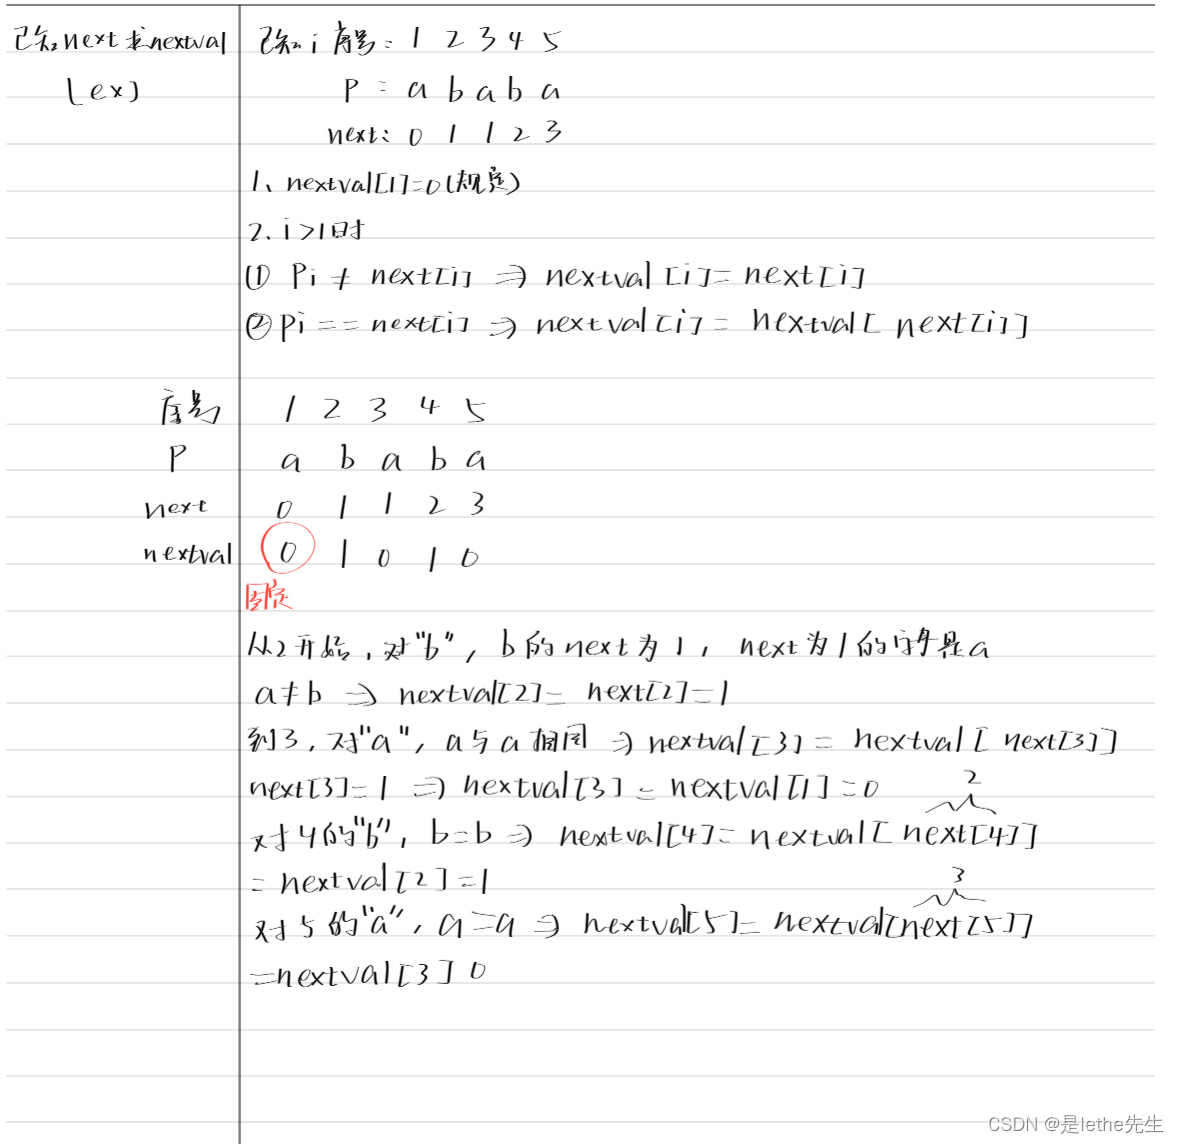 已知next求nextval
[ex]
已知i序号: 1 2 3 4 5
P: a b a b a
next: 0 1 1 2 3
1、nextval[1]=0(规定)
2、i>1时
① Pi ≠ next[i] ⇒ nextval[i]=next[i]
② Pi == next[i] ⇒ nextval[i] = nextval[ next[i]]
序号 1 2 3 4 5
P a b a b a
next 0 1 1 2 3
nextval 0 1 0 1 0
固定
从2开始,对"b", b的next为1, next为1的字母是a
a≠b ⇒ nextval[2]= next[2]=1
到3,对"a", a与a相同 ⇒ nextval[3] = nextval[ next[3]]
next[3]=1 ⇒ nextval[3] = nextval[1]=0
2
对4的"b", b=b ⇒ nextval[4]= nextval[ next[4]]
= nextval[2]=1
3
对5的"a", a=a ⇒ nextval[5]= nextval[next[5]]
=nextval[3] 0
CSDN @是lethe先生